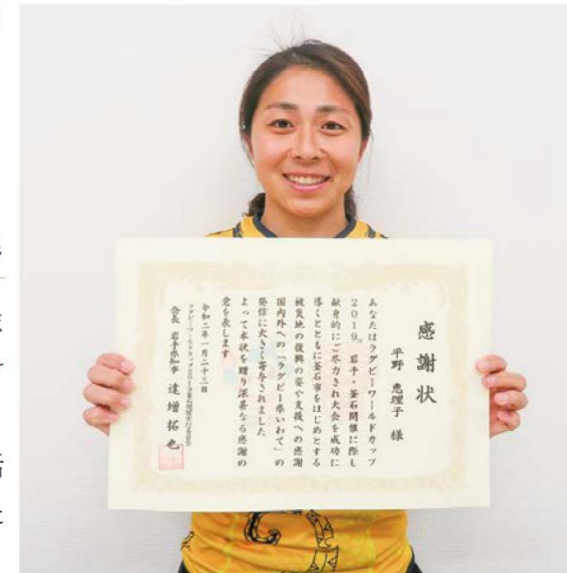 感謝状
平野 恵理子 様
あなたはラグビーワールドカップ
2019™ 岩手・釜石開催に際し
献身的にご尽力され大会を成功に
導くとともに釜石市をはじめとする
被災地の復興の姿や支援への感謝
国内外への「ラグビー県いわて」の
発信に大きく寄与されました
よって本状を贈り深甚なる感謝の
意を表します
令和二年一月二十三日
会長 岩手県知事 達増拓也